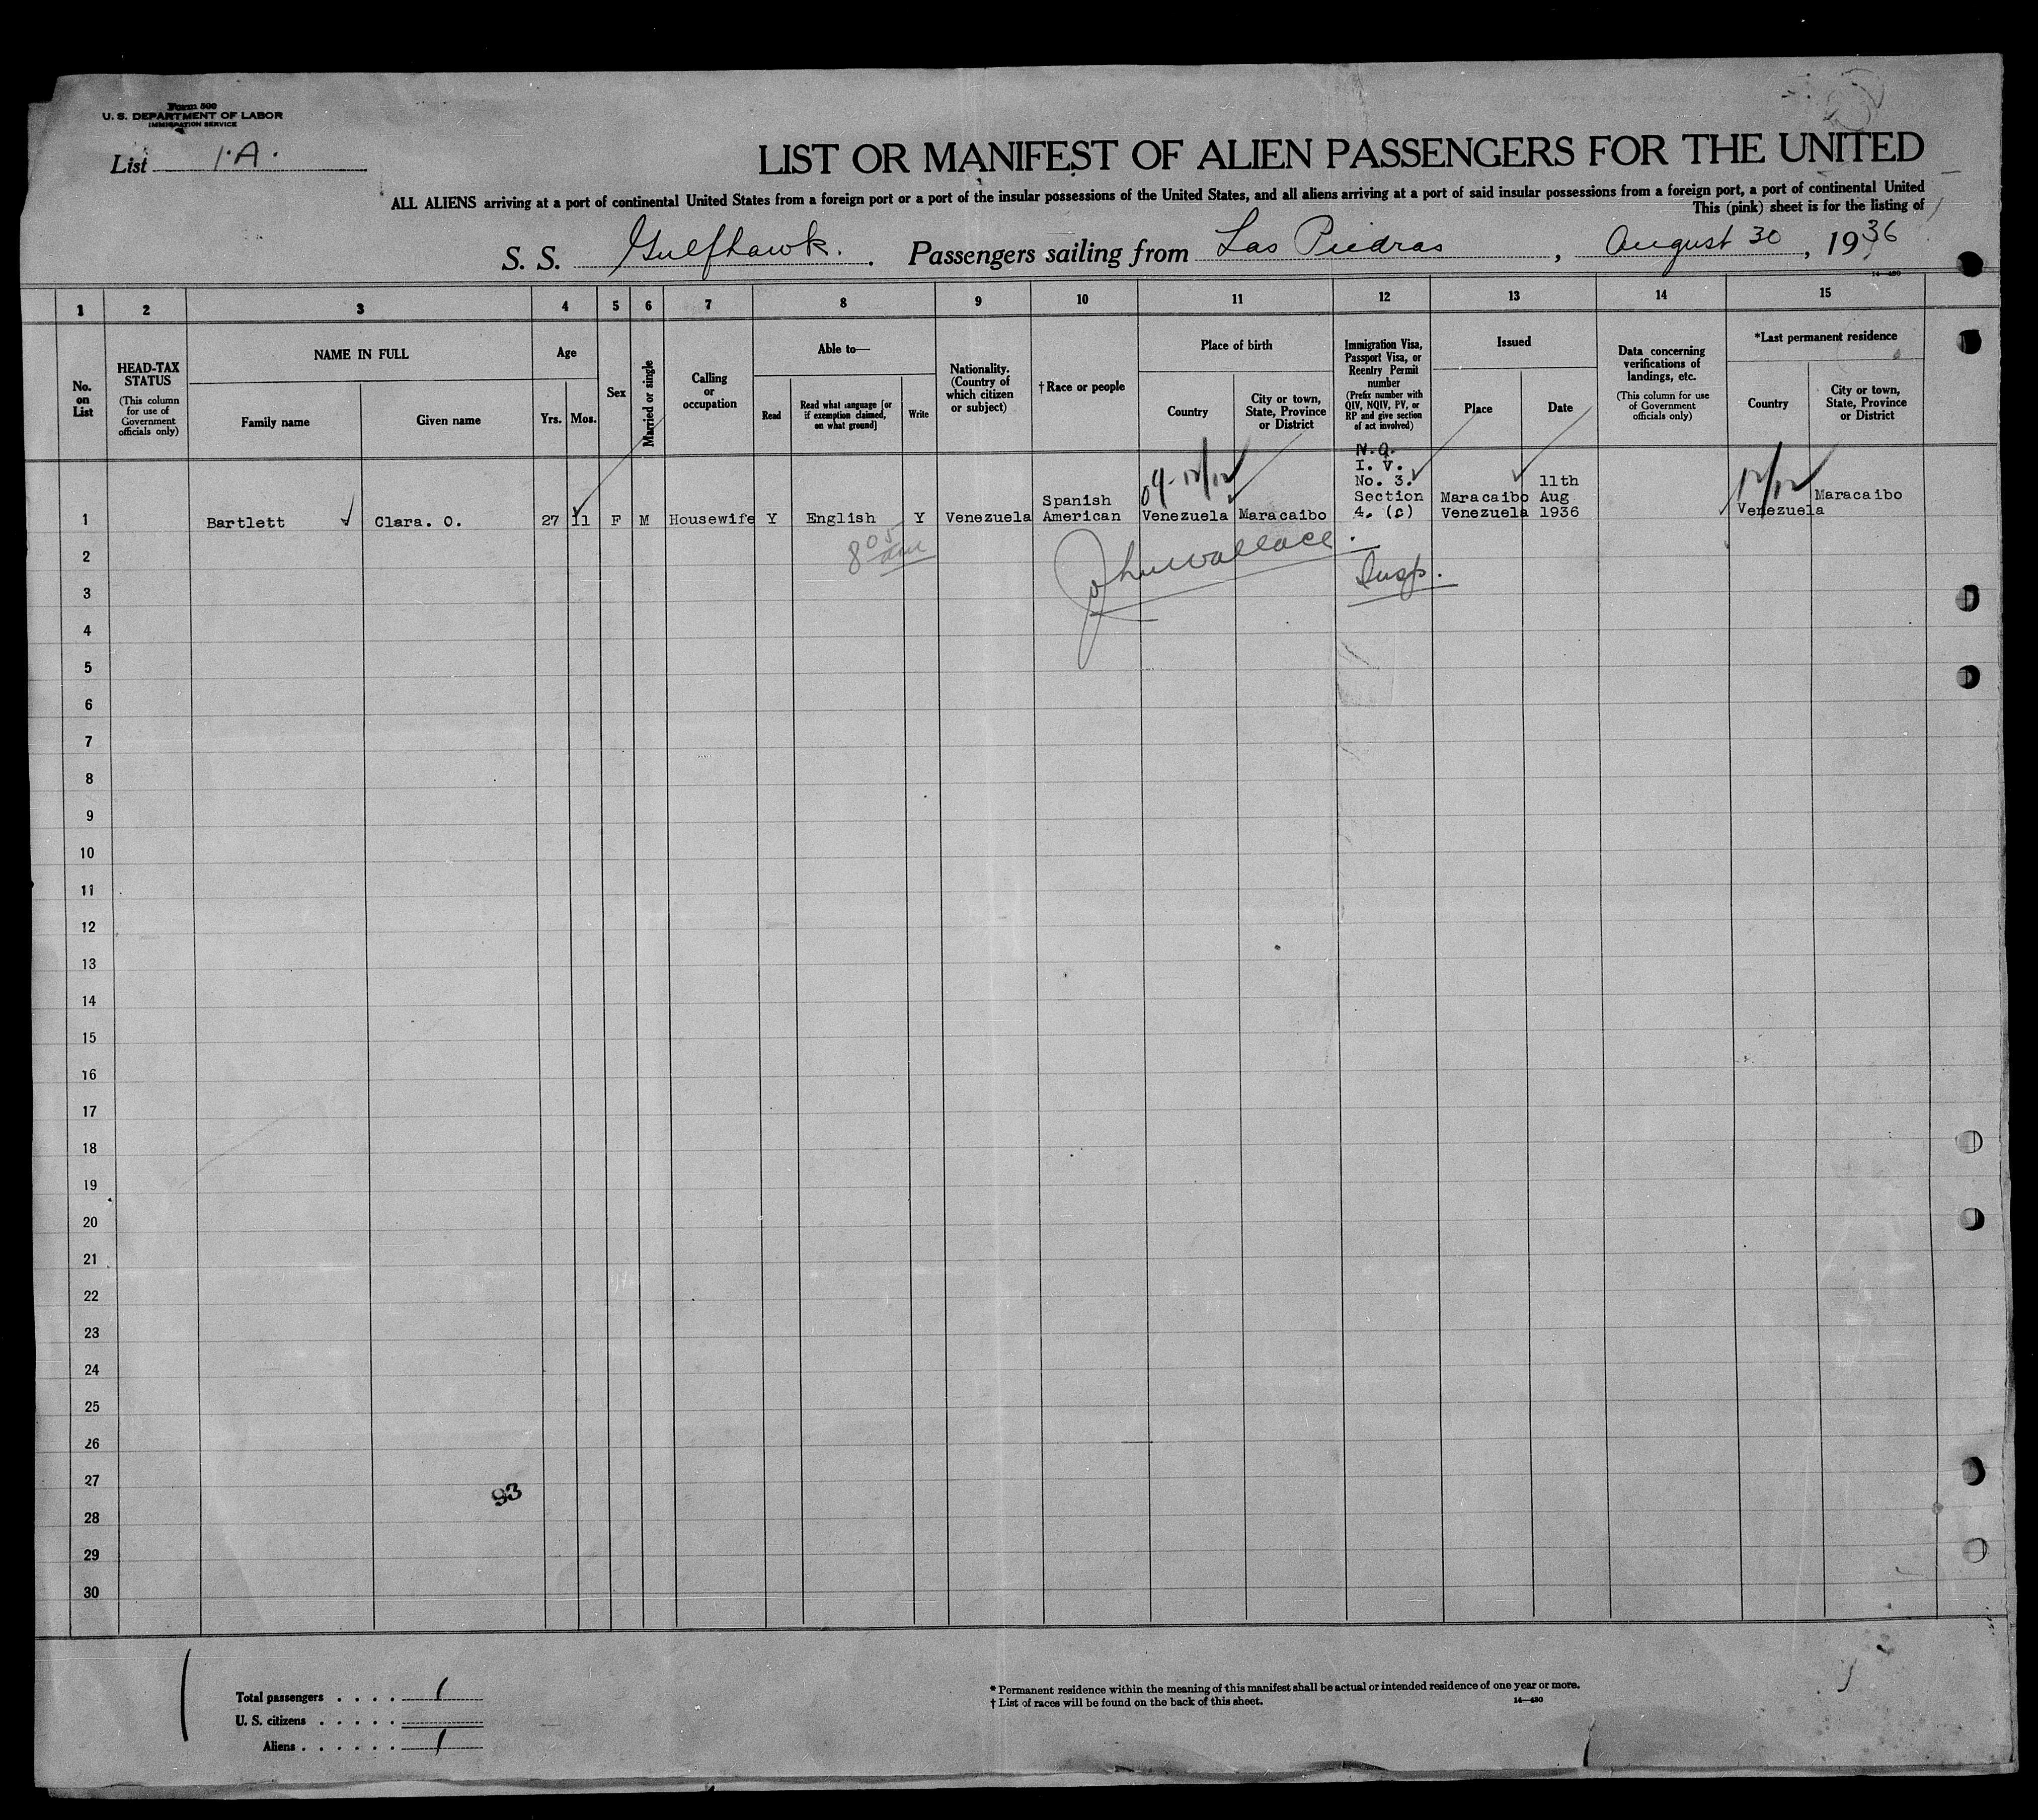 Form 500
U. S. DEPARTMENT OF LABOR
IMMIGRATION SERVICE
List 1.A.
LIST OR MANIFEST OF ALIEN PASSENGERS FOR THE UNITED
ALL ALIENS arriving at a port of continental United States from a foreign port or a port of the insular possessions of the United States, and all aliens arriving at a port of said insular possessions from a foreign port, a port of continental United
This (pink) sheet is for the listing of
S. S. Gulfhawk. Passengers sailing from Las Piedras, August 30, 1936
14—430
1 2 3 4 5 6 7 8 9 10 11 12 13 14 15
No. on List
HEAD-TAX STATUS
(This column for use of Government officials only)
NAME IN FULL
Family name
Given name
Age
Yrs.
Mos.
Sex
Married or single
Calling or occupation
Able to—
Read
Read what language [or if exemption claimed, on what ground]
Write
Nationality. (Country of which citizen or subject)
†Race or people
Place of birth
Country
City or town, State, Province or District
Immigration Visa, Passport Visa, or Reentry Permit number
(Prefix number with QIV, NQIV, PV, or RP and give section of act involved)
Issued
Place
Date
Data concerning verifications of landings, etc.
(This column for use of Government officials only)
*Last permanent residence
Country
City or town, State, Province or District
1 Bartlett Clara. O. 27 11 F M Housewife Y English Y Venezuela Spanish American Venezuela Maracaibo N.Q. I. V. No. 3. Section 4. (c) Maracaibo Venezuela 11th Aug 1936 Venezuela Maracaibo
12/12
8 05 am
John Wallace.
Insp.
2
3
4
5
6
7
8
9
10
11
12
13
14
15
16
17
18
19
20
21
22
23
24
25
26
27
93
28
29
30
Total passengers . . . . 1
U. S. citizens . . . . .
Aliens . . . . . . 1
* Permanent residence within the meaning of this manifest shall be actual or intended residence of one year or more.
† List of races will be found on the back of this sheet.
14—430